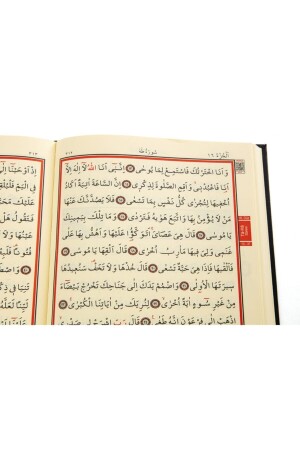 الجزء ١٦
سورة طه
٣١٢
وَاَنَا اخْتَرْتُكَ فَاسْتَمِعْ لِمَا يُوحٰى اِنَّنٖى اَنَا اللّٰهُ لَا اِلٰهَ اِلَّا
اَنَا فَاعْبُدْنٖى وَاَقِمِ الصَّلٰوةَ لِذِكْرٖى اِنَّ السَّاعَةَ اٰتِيَةٌ اَكَادُ
اُخْفٖيهَا لِتُجْزٰى كُلُّ نَفْسٍ بِمَا تَسْعٰى فَلَا يَصُدَّنَّكَ عَنْهَا
مَنْ لَا يُؤْمِنُ بِهَا وَاتَّبَعَ هَوٰيهُ فَتَرْدٰى وَمَا تِلْكَ بِيَمٖينِكَ
يَا مُوسٰى قَالَ هِىَ عَصَاىَ اَتَوَكَّؤُا عَلَيْهَا وَاَهُشُّ بِهَا عَلٰى
غَنَمٖى وَلِىَ فٖيهَا مَاٰرِبُ اُخْرٰى قَالَ اَلْقِهَا يَا مُوسٰى
فَاَلْقٰيهَا فَاِذَا هِىَ حَيَّةٌ تَسْعٰى قَالَ خُذْهَا وَلَا تَخَفْ سَنُعٖيدُهَا
سٖيرَتَهَا الْاُولٰى وَاضْمُمْ يَدَكَ اِلٰى جَنَاحِكَ تَخْرُجْ بَيْضَاءَ
مِنْ غَيْرِ سُوءٍ اٰيَةً اُخْرٰى لِنُرِيَكَ مِنْ اٰيَاتِنَا الْكُبْرٰى
اِذْهَبْ اِلٰى فِرْعَوْنَ اِنَّهُ طَغٰى قَالَ رَبِّ اشْرَحْ لٖى صَدْرٖى
٣١٣
اِذْ اَوْحَيْنَا اِلٰى
فِى الْيَمِّ فَلْيُلْقِهِ
عَلَيْكَ مَحَبَّةً
فَتَقُولُ هَلْ